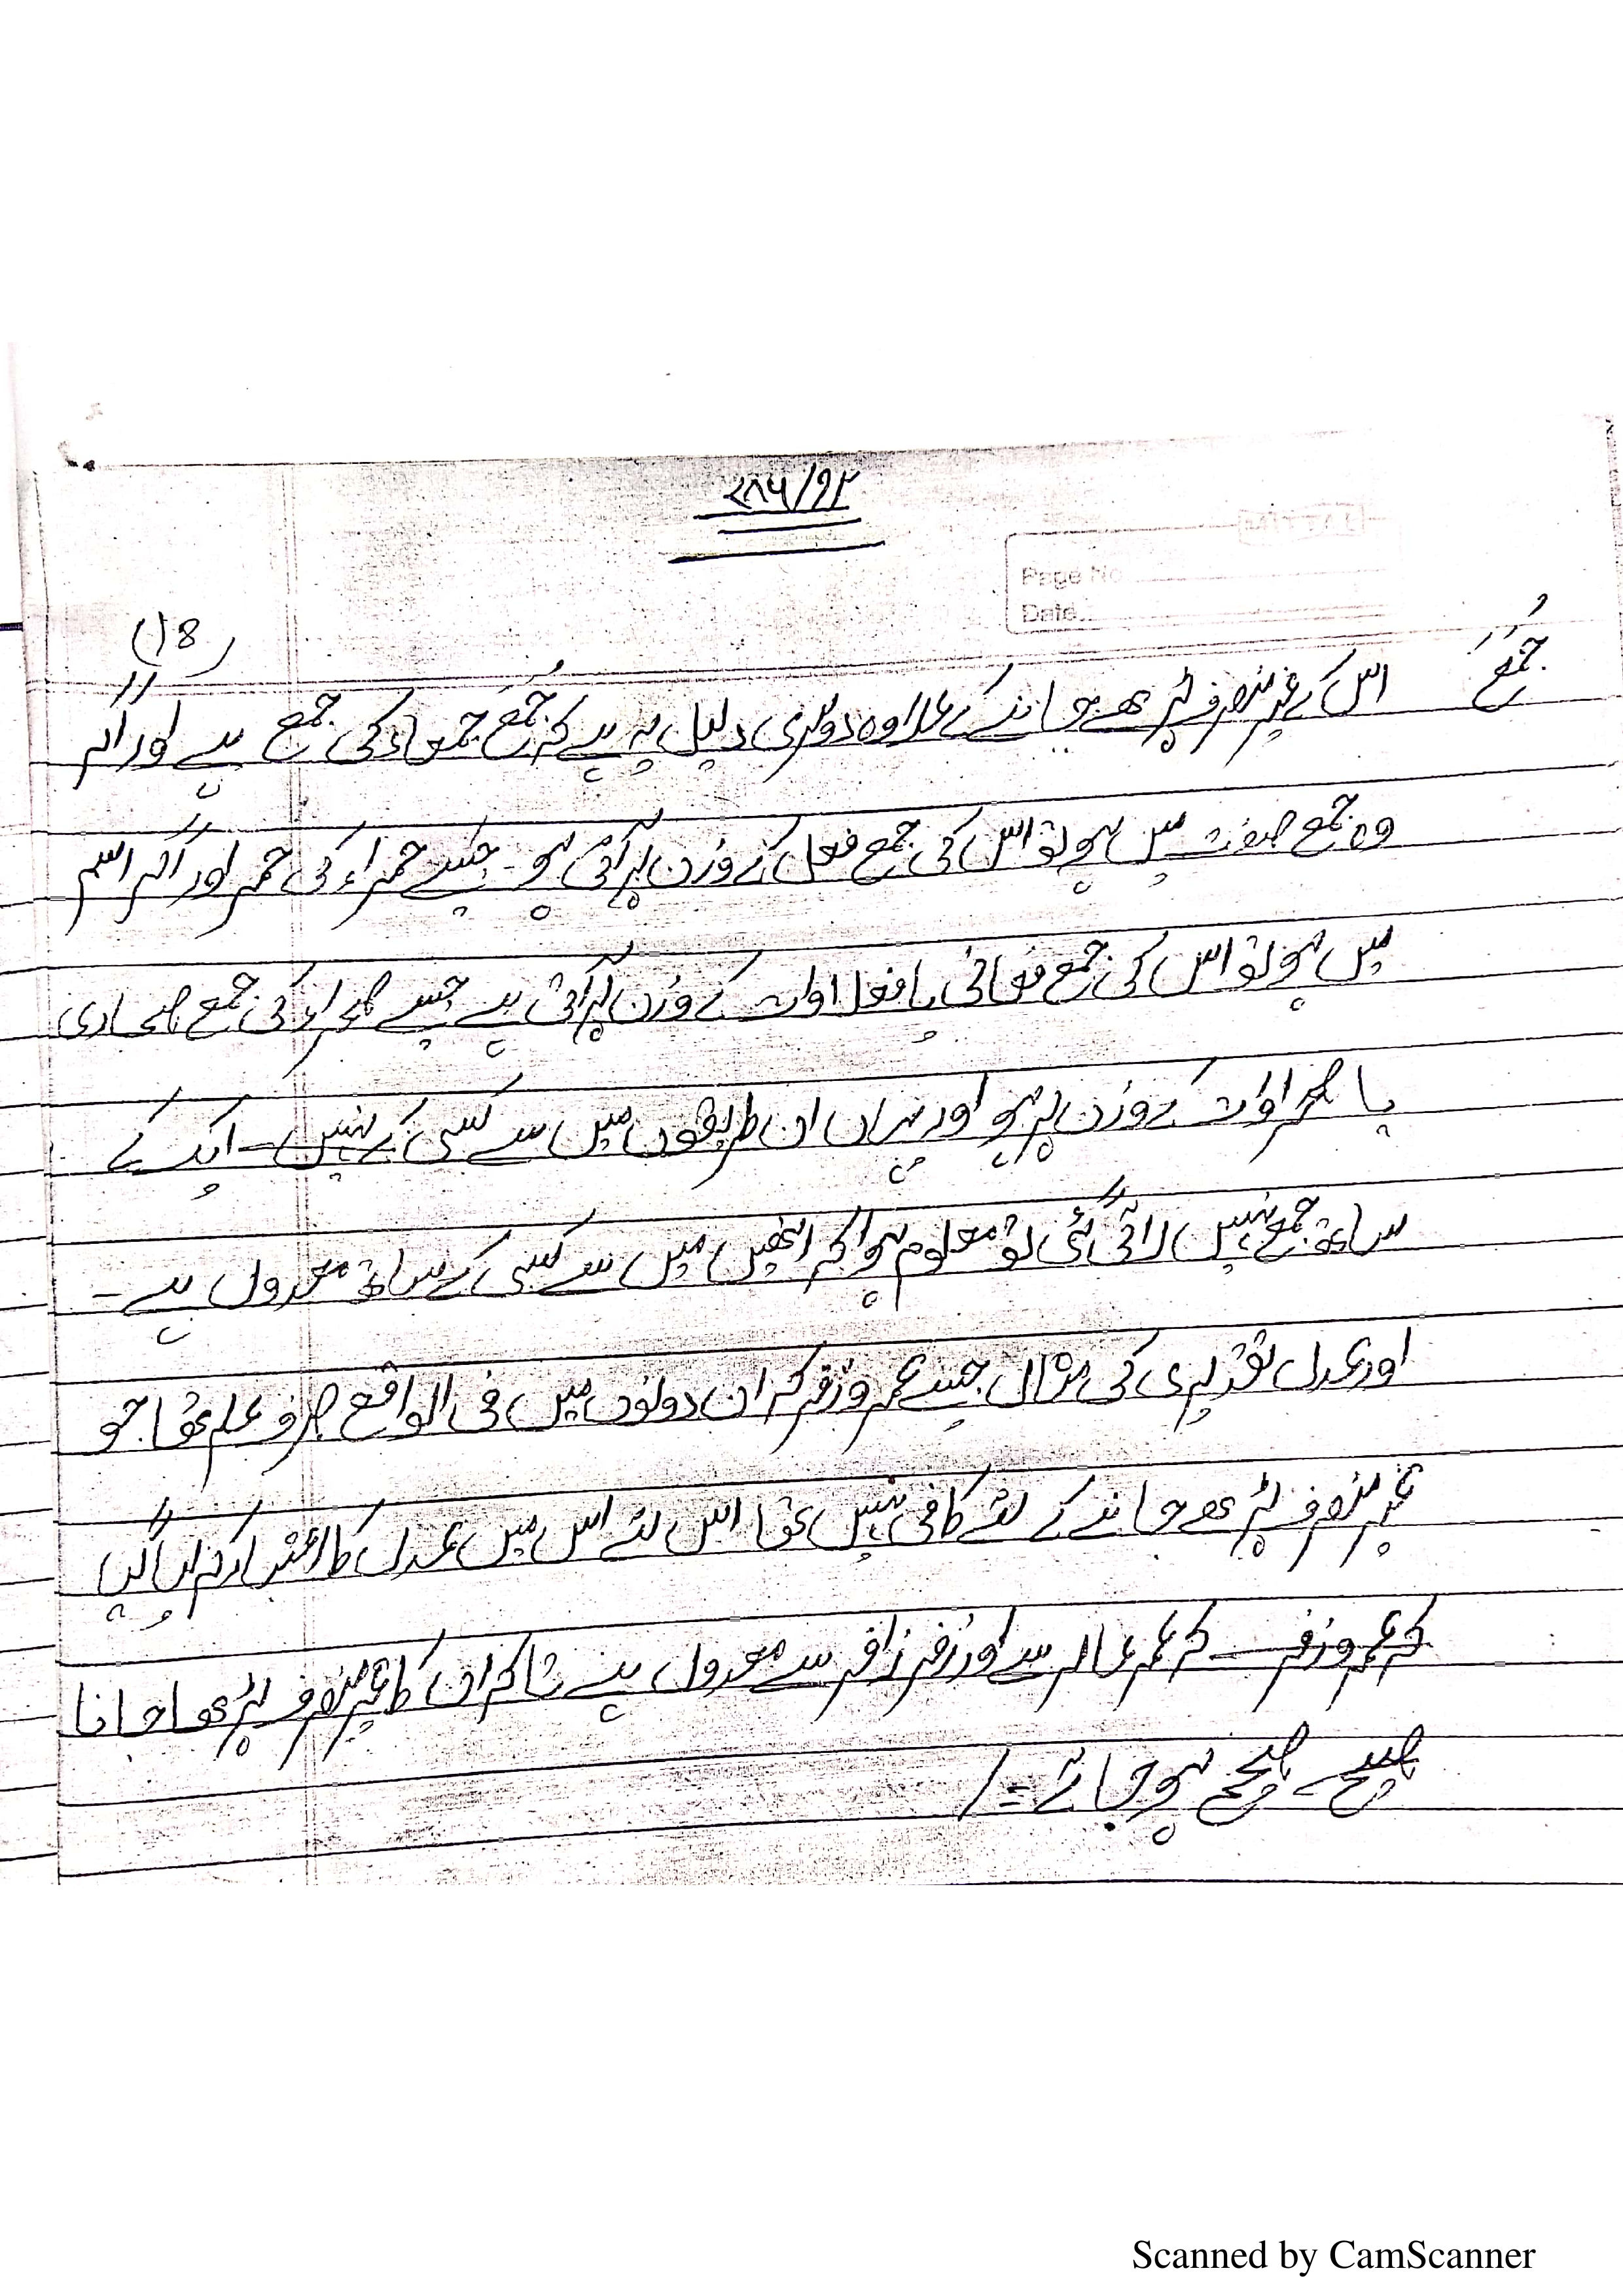 ۷۸۶/۹۲
Page No.
Date
(18)
جُمَعُ اس کے غیر منصرف پڑھے جانے کے علاوہ دوسری دلیل یہ ہے کہ جُمَع جمعاء کی جمع ہے اور اگر
وہ جمع صفت میں ہو تو اس کی جمع فعل کے وزن پر آتی ہو۔ جیسے حمراء کی حمر اور اگر اسم
میں ہو تو اس کی جمع فعالی یا فعلاوات کے وزن پر آتی ہے جیسے صحراء کی جمع صحاری
یا صحراوات کے وزن پر ہو اور یہاں ان طریقوں میں سے کسی کے نہیں۔ ایک کے
ساتھ جمع نہیں لائی گئی تو معلوم ہوا کہ انھیں میں سے کسی کے ساتھ معدول ہے۔
اور عدل تقدیری کی مثال جیسے عمر و زفر کہ ان دونوں میں فی الواقع صرف علم تھا جو
غیر منصرف پڑھے جانے کے لئے کافی نہیں تھا اس لئے اس میں عدل کا اعتبار کر لیا گیا
کہ عمر و زفر۔ کہ عمر عامر سے اور زفر زافر سے معدول ہے تاکہ ان کا غیر منصرف پڑھا جانا
صحیح صحیح ہو جائے۔/
Scanned by CamScanner